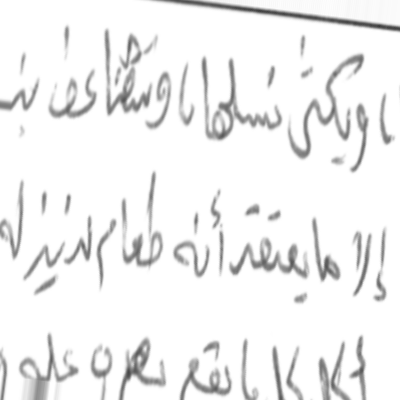 ا ويكثر نسلها، وتتقاعض
إلا ما يعتقد أنه طعام لذيذ له
أكل كل ما يقع بصره عليه